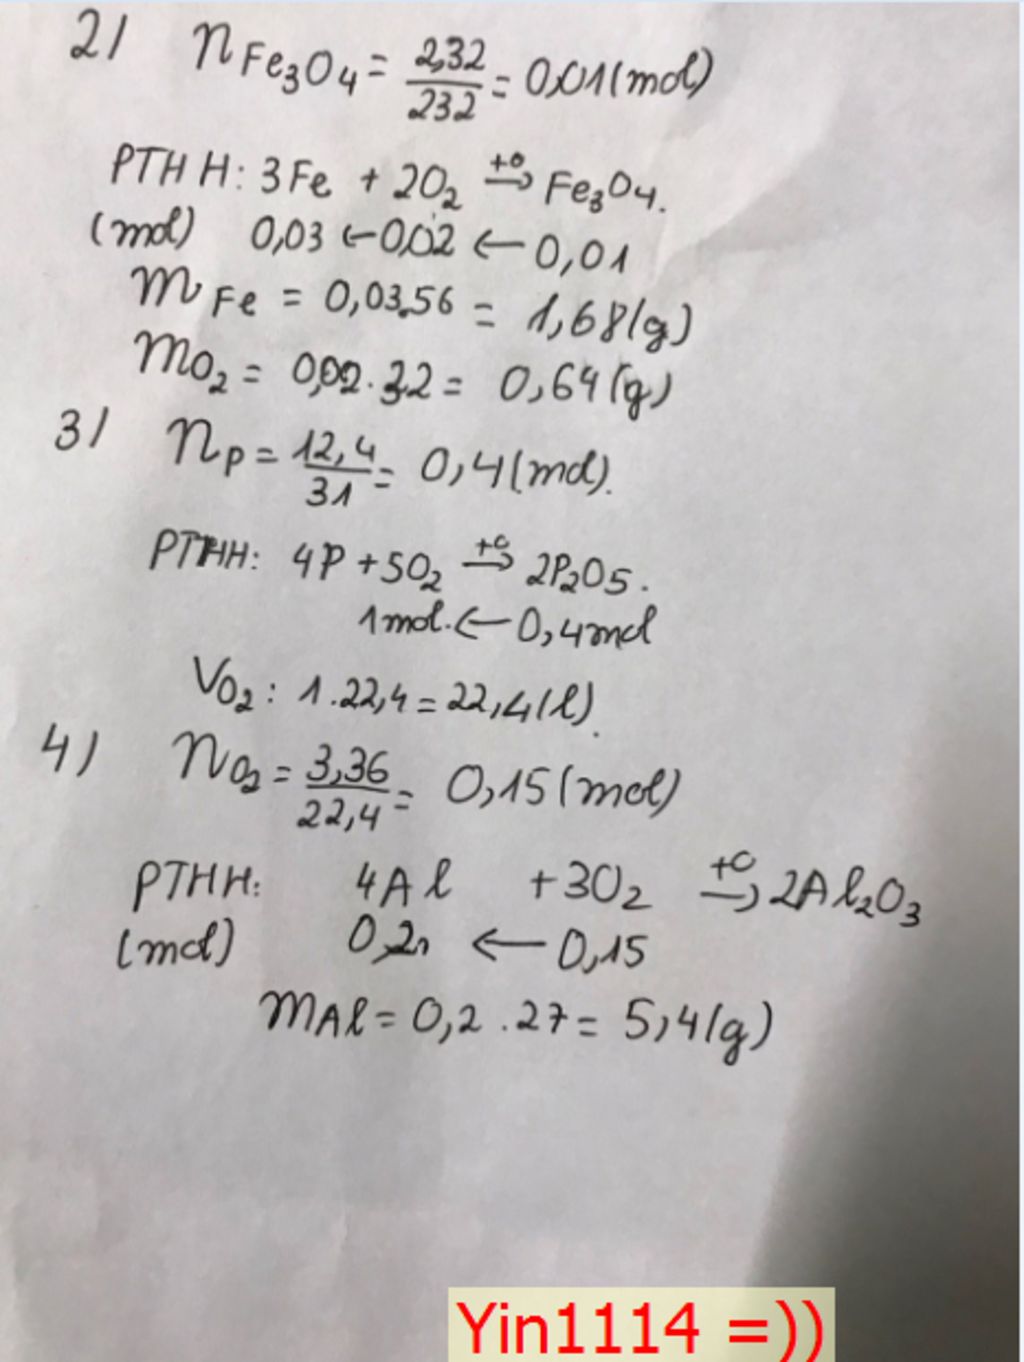 2/ nFe₃O₄ = 2,32/232 = 0,01(mol)
PTHH: 3Fe + 2O₂ →(t°) Fe₃O₄.
(mol) 0,03 ← 0,02 ← 0,01
mFe = 0,03.56 = 1,68(g)
mO₂ = 0,02.32 = 0,64(g)
3/ nP = 12,4/31 = 0,4(mol).
PTHH: 4P + 5O₂ →(t°) 2P₂O₅.
1mol. ← 0,4mol
VO₂: 1.22,4 = 22,4(l).
4) nO₂ = 3,36/22,4 = 0,15(mol)
PTHH: 4Al + 3O₂ →(t°) 2Al₂O₃
(mol) 0,2 ← 0,15
mAl = 0,2.27 = 5,4(g)
Yin1114 =))